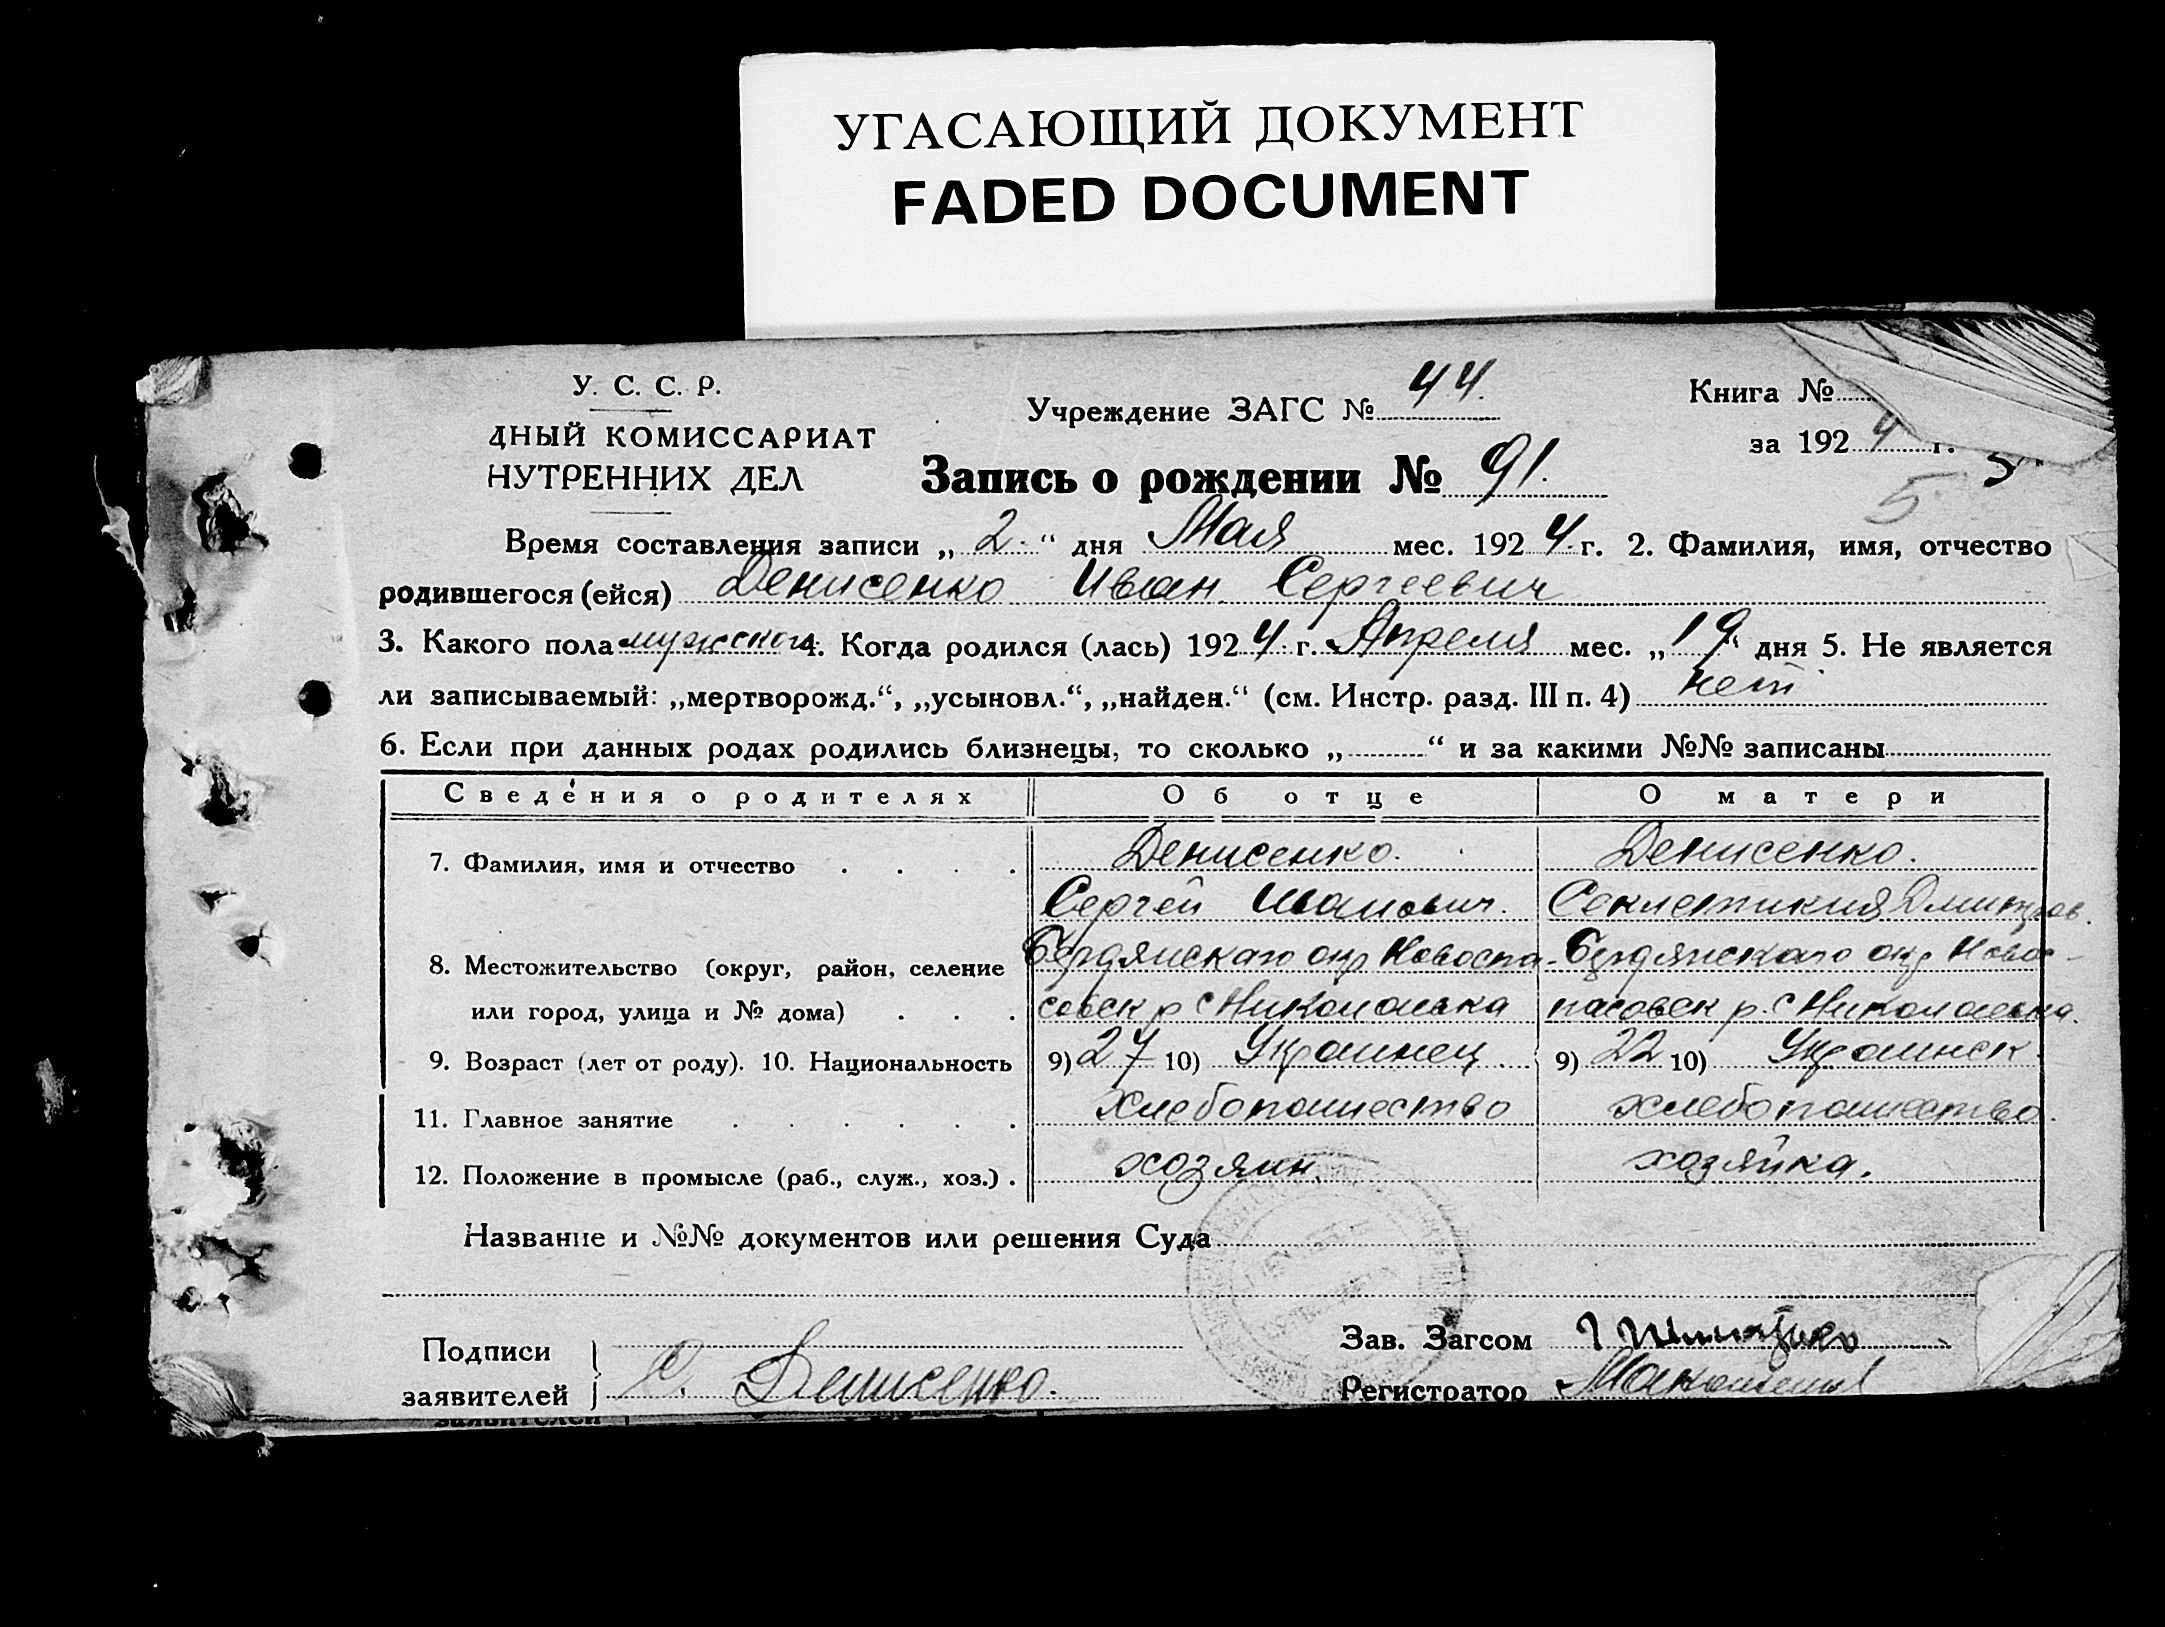 УГАСАЮЩИЙ ДОКУМЕНТ
FADED DOCUMENT
У. С. С. Р.
ДНЫЙ КОМИССАРИАТ
НУТРЕННИХ ДЕЛ
Учреждение ЗАГС № 44.
Книга №
за 1924 г.
Запись о рождении № 91.
5
Время составления записи „ 2. “ дня Мая мес. 1924. г. 2. Фамилия, имя, отчество
родившегося (ейся) Денисенко Иван Сергеевич
3. Какого пола мужского 4. Когда родился (лась) 1924. г. Апреля мес. „ 19 “ дня 5. Не является
ли записываемый: „мертворожд.“, „усыновл.“, „найден.“ (см. Инстр. разд. III п. 4) нет
6. Если при данных родах родились близнецы, то сколько „ “ и за какими №№ записаны
Сведения о родителях Об отце О матери
7. Фамилия, имя и отчество Денисенко. Денисенко.
Сергей Иванович. Секлетикия Дмитров.
8. Местожительство (округ, район, селение Бердянскаго окр Новоспа- Бердянскаго окр Новос-
или город, улица и № дома) совск р с Николаевка пасовск р. с Николаевка.
9. Возраст (лет от роду). 10. Национальность 9) 27 10) Украинец. 9) 22 10) Украинск.
11. Главное занятие хлебопашество хлебопашество.
12. Положение в промысле (раб., служ., хоз.) хозяин. хозяйка.
Название и №№ документов или решения Суда
Подписи
заявителей С. Денисенко.
Зав. Загсом
Регистратор